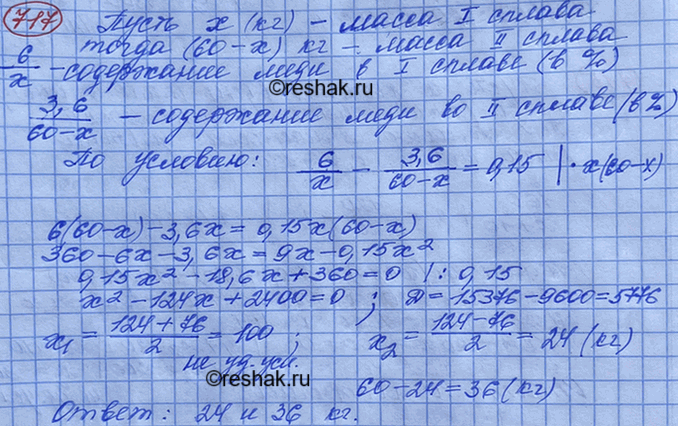 717 Пусть x (кг) – масса I сплава
тогда (60-x) кг – масса II сплава
6/x - содержание меди в I сплаве (в %)
©reshak.ru
3,6/(60-x) – содержание меди во II сплаве (в %)
По условию: 6/x - 3,6/(60-x) = 0,15 | · x(60-x)
6(60-x)-3,6x = 0,15x(60-x)
360-6x-3,6x = 9x-0,15x²
0,15x²-18,6x+360=0 |: 0,15
x²-124x+2400=0 ; D=15376-9600=5776
x₁ = (124+76)/2 = 100 ; x₂ = (124-76)/2 = 24 (кг)
не уд. усл.
©reshak.ru
60-24=36 (кг)
Ответ: 24 и 36 кг.